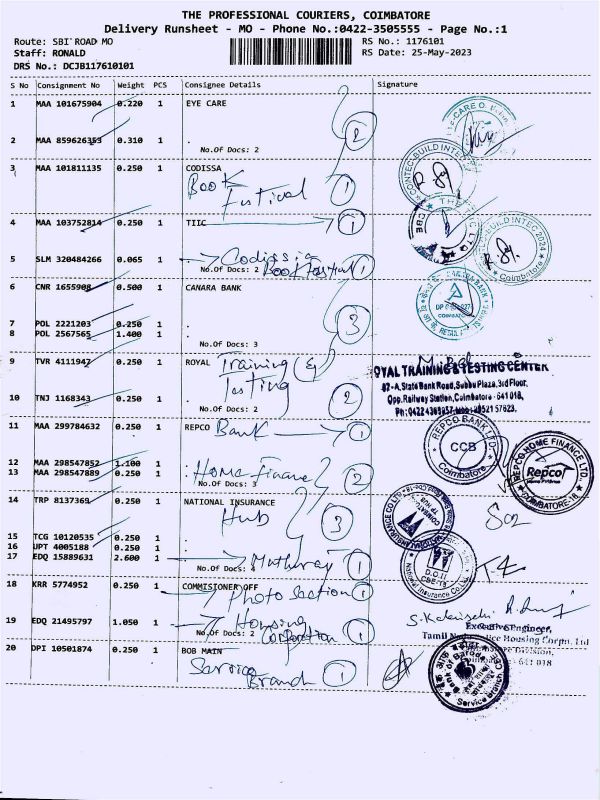 THE PROFESSIONAL COURIERS, COIMBATORE
Delivery Runsheet - MO - Phone No.:0422-3505555 - Page No.:1
Route: SBI ROAD MO RS No.: 1176101
Staff: RONALD RS Date: 25-May-2023
DRS No.: DCJB117610101
S No Consignment No Weight PCS Consignee Details Signature
1 MAA 101675904 0.220 1 EYE CARE
2 MAA 859626353 0.310 1 . 2
No.Of Docs: 2
3 MAA 101811135 0.250 1 CODISSA
Book
Festival 1
4 MAA 103752814 0.250 1 TIIC 1
5 SLM 320484266 0.065 1 . Codissia
No.Of Docs: 2 Book Festival 1
6 CNR 1655908 0.500 1 CANARA BANK
7 POL 2221203 0.250 1 . 3
8 POL 2567565 1.400 1 .
No.Of Docs: 3
9 TVR 4111947 0.250 1 ROYAL Training &
Testing
10 TNJ 1168343 0.250 1 . 2
No.Of Docs: 2
ROYAL TRAINING & TESTING CENTER
82-A, State Bank Road, Subbu Plaza, 3rd Floor,
Opp. Railway Station, Coimbatore - 641 018,
11 MAA 299784632 0.250 1 REPCO Bank 1
REPCO BANK LTD
CCB
Coimbatore
12 MAA 298547852 1.100 1 . Home Finance 2
13 MAA 298547889 0.250 1 .
No.Of Docs: 3
REPCO HOME FINANCE LTD.,
Repco
COIMBATORE-18
14 TRP 8137369 0.250 1 NATIONAL INSURANCE
Hub 3
15 TCG 10120535 0.250 1 .
16 UPT 4005188 0.250 1 .
17 EDQ 15889631 2.600 1 .
No.Of Docs: 1
D.O.II
CBE-18
National Insurance Co
18 KRR 5774952 0.250 1 COMMISIONER OFF
Photo Section 1
19 EDQ 21495797 1.050 1 . Housing
No.Of Docs: 2 Corporation 1
Executive Engineer,
20 DPI 10501874 0.250 1 BOB MAIN
Service
Branch 1
Service Branch